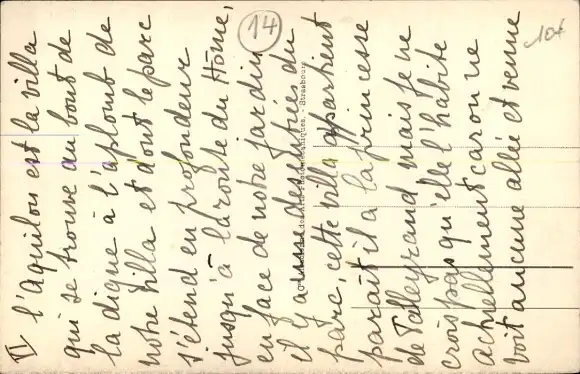 VI. l'Aquilon est la villa
qui se trouve au bout de
la digue à l'aplomb de
notre villa et dont le parc
s'étend en profondeur
jusqu'à la route du Hôme,
en face de notre jardin
il y a une des entrées du
parc, cette villa appartient
paraît-il à la princesse
de Talleyrand mais je ne
crois pas qu'elle l'habite
actuellement car on ne
voit aucune allée et venue
14
10+
Strasbourg